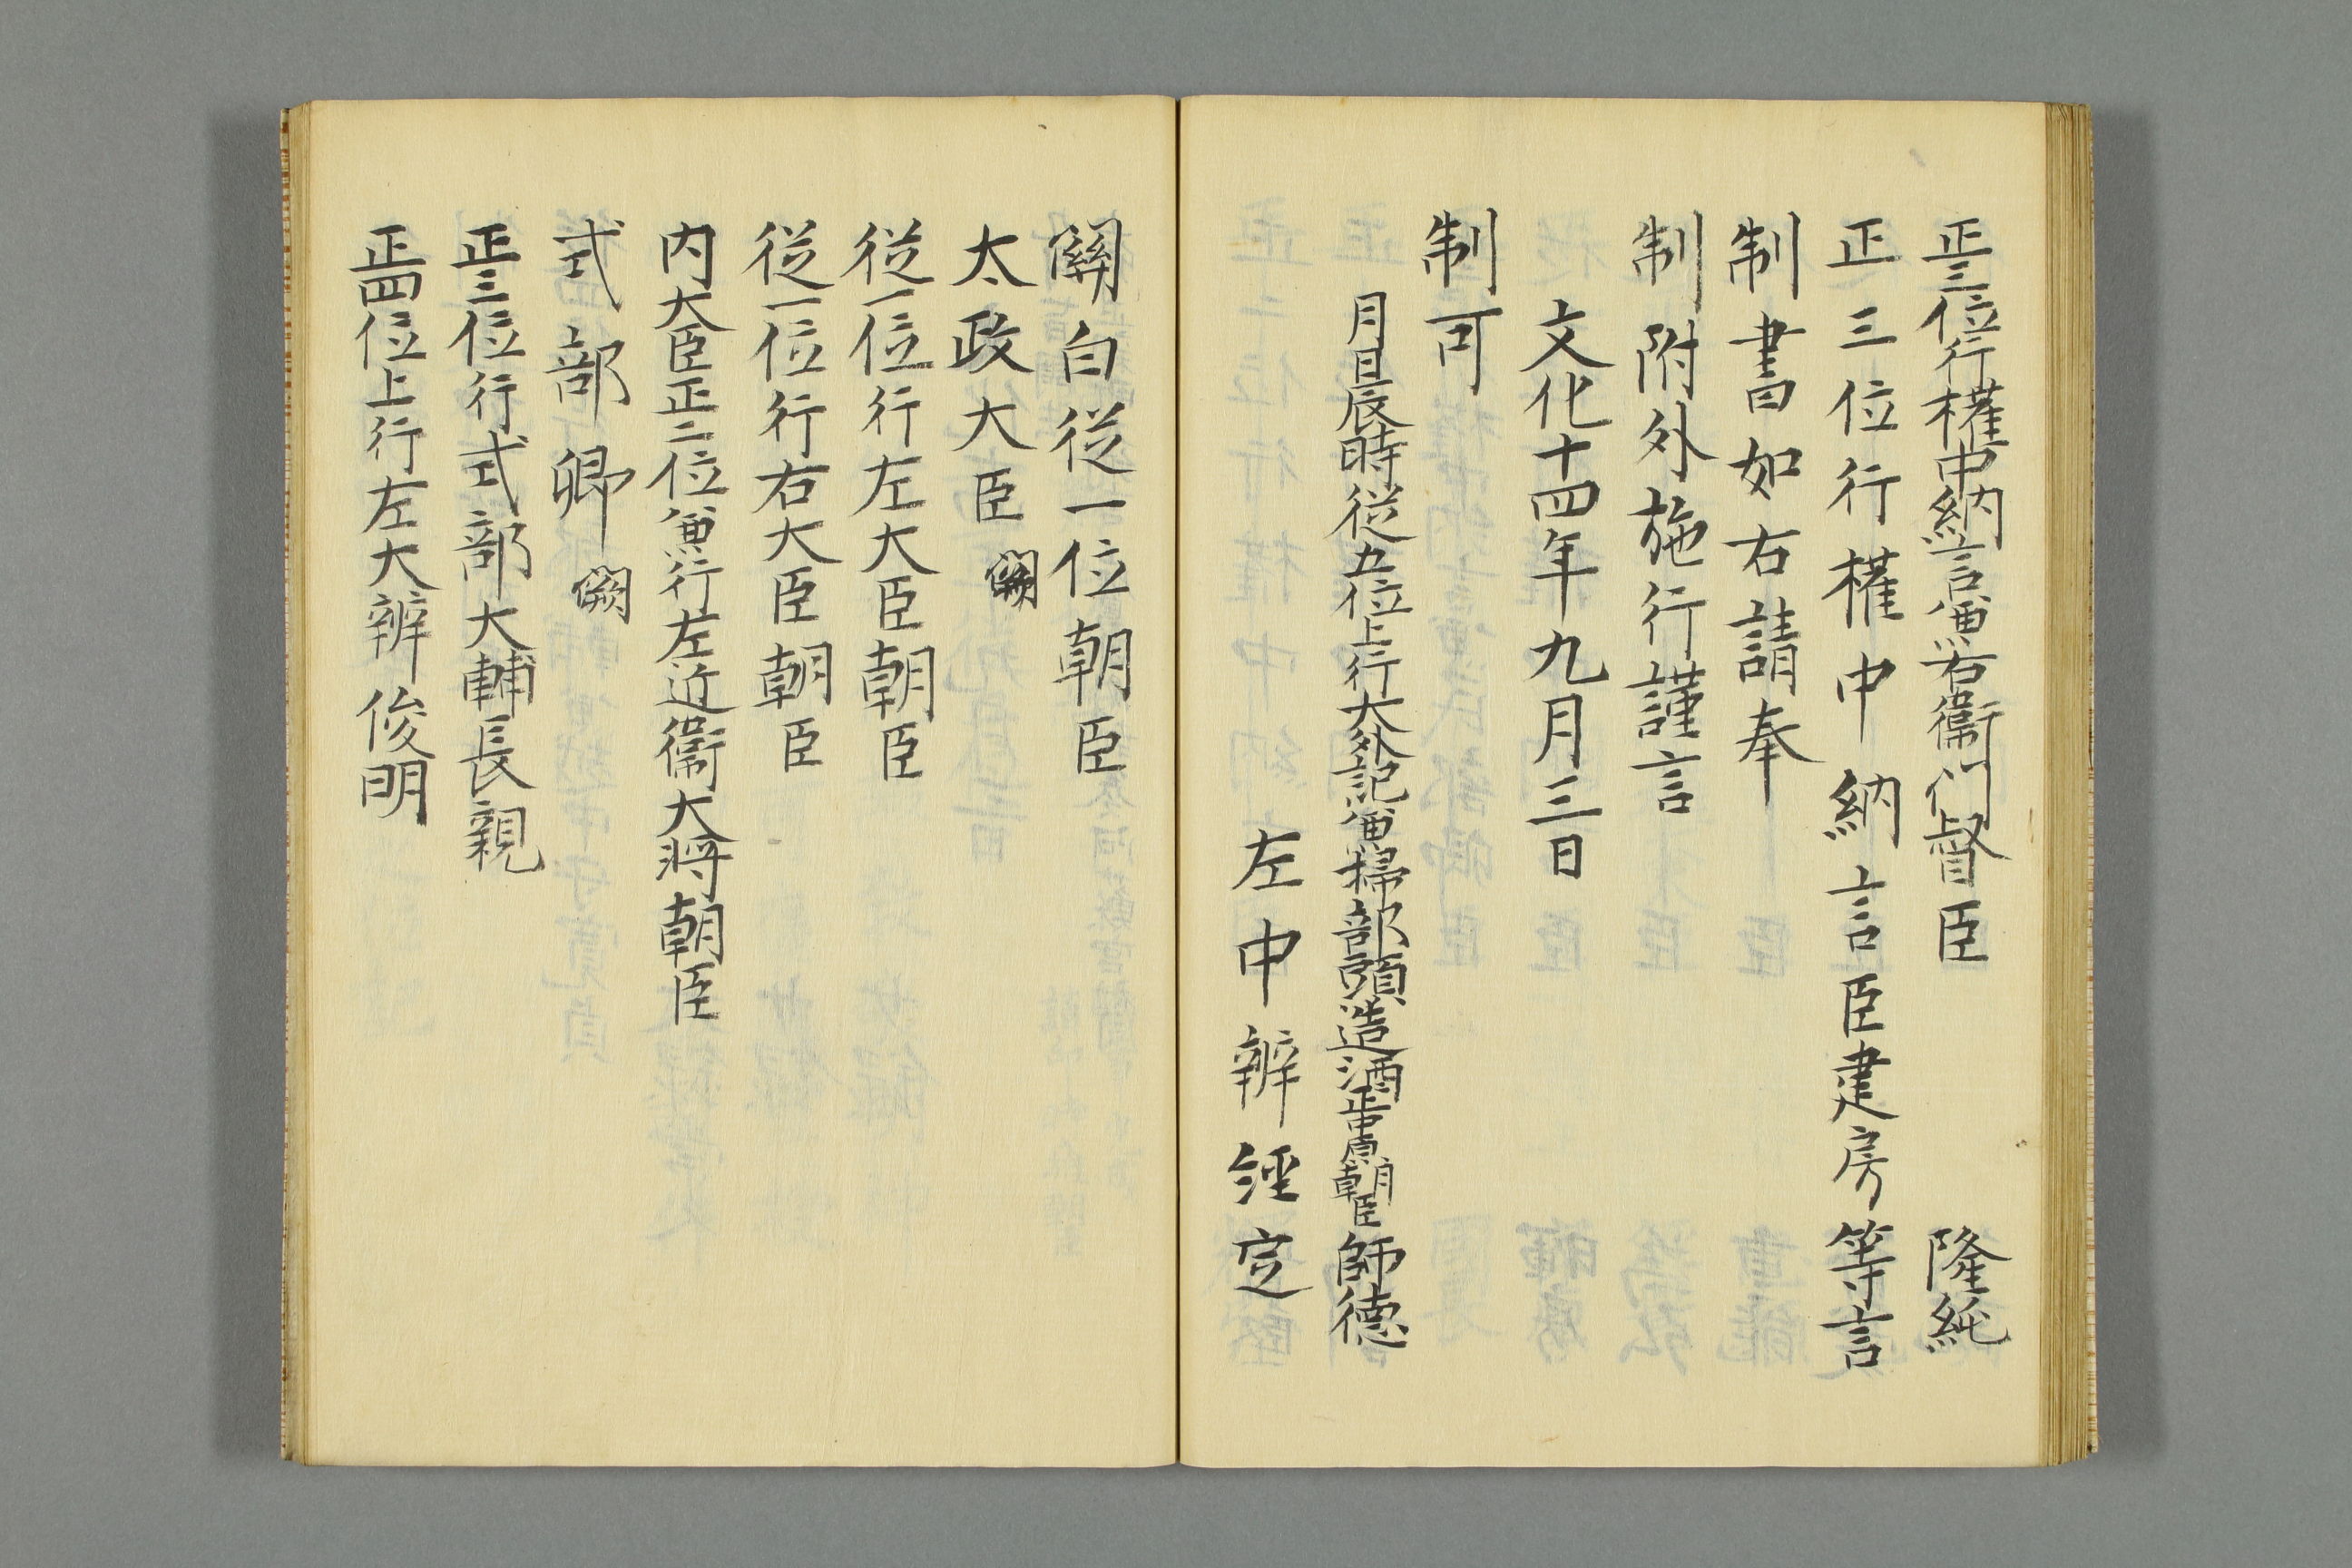 正三位行權中納言兼右衞門督臣 隆純
正三位行權中納言臣建房等言
制書如右請奉
制附外施行謹言
文化十四年九月三日
制可
月日辰時從五位上行大外記兼掃部頭造酒正中原朝臣師德
左中辨經定
關白從一位朝臣
太政大臣 闕
從一位行左大臣朝臣
從一位行右大臣朝臣
内大臣正二位兼行左近衞大將朝臣
式部卿 闕
正三位行式部大輔長親
正四位上行左大辨俊明